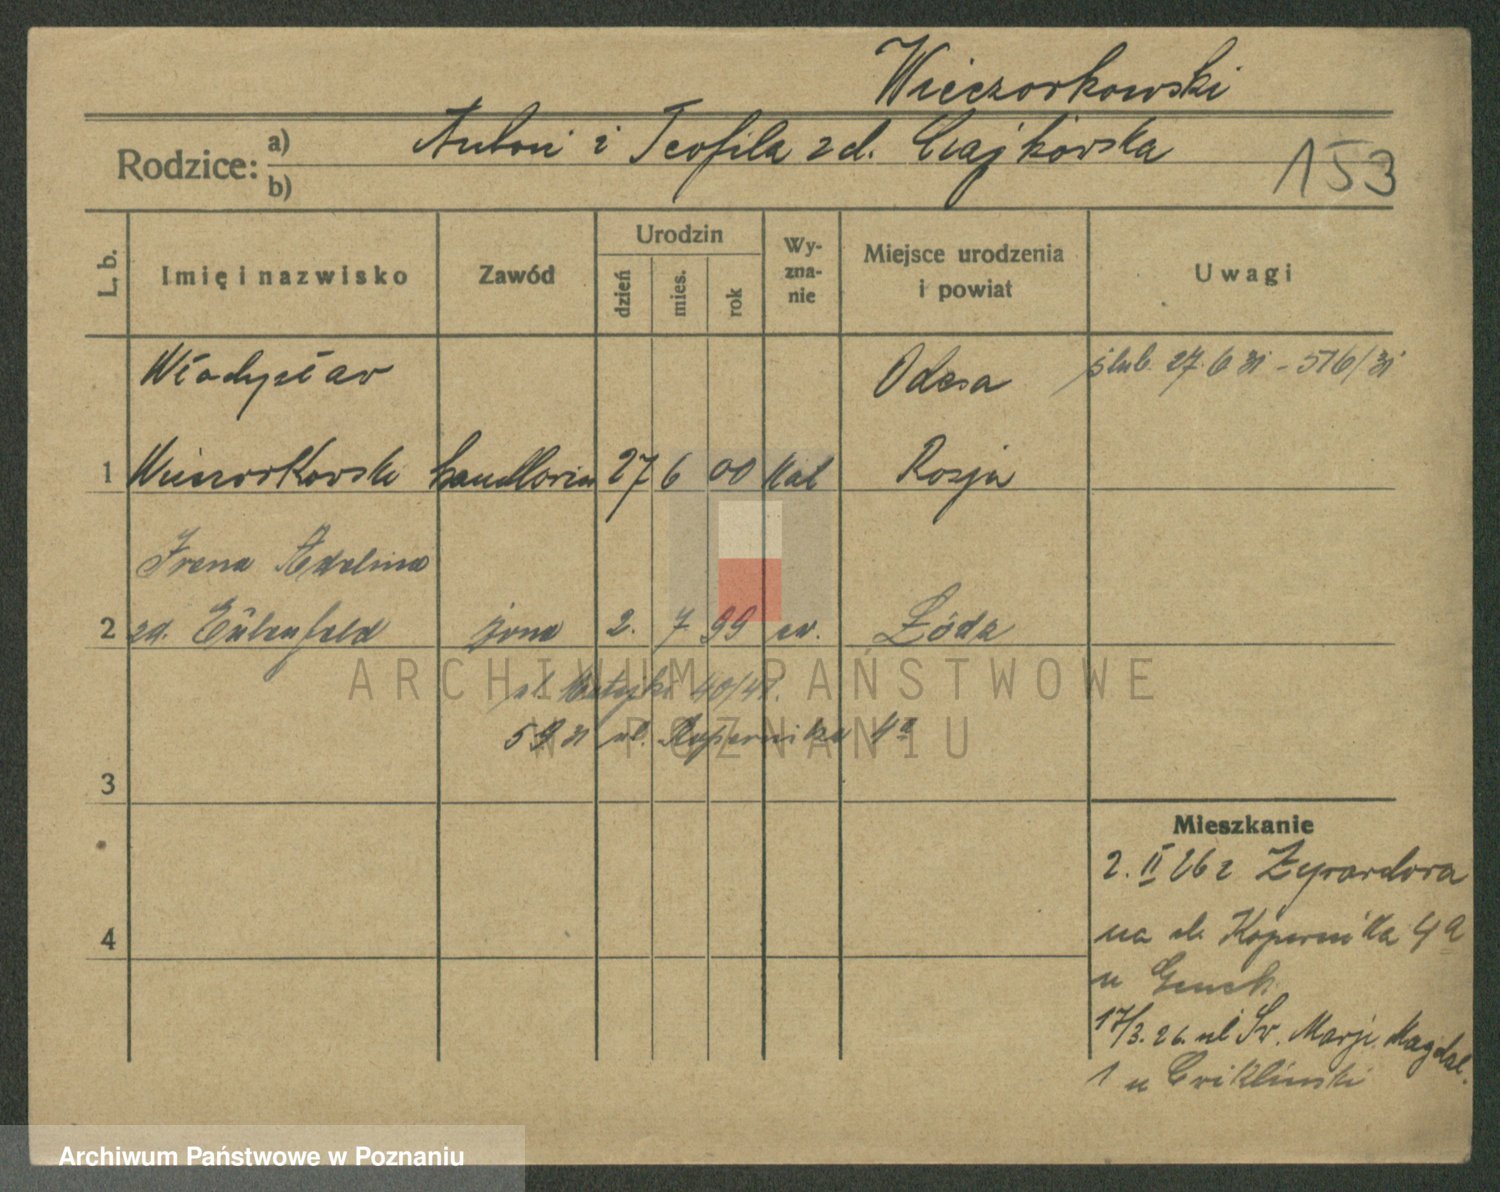 Wieczorkowski
Rodzice:
a) Antoni i Teofila zd. Czajkowska
b)
153
L. b.
Imię i nazwisko
Zawód
Urodzin
dzień
mies.
rok
Wy-
zna-
nie
Miejsce urodzenia
i powiat
Uwagi
Władysław
Odesa
ślub. 27.6 31 - 516/31
1 Wieczorkowski handlowiec 27 6 00 kat Rosja
Irena Adelina
2 zd. Eulenfeld żona 2. 7 99 ew. Łódz
ul. Matejki 40/41.
5 9 31 ul. Kopernika 4a
3
Mieszkanie
2. II 26 z Żyrardowa
4
na ul. Kopernika 4a
u
17/3. 26. ul Św. Marji Magdal.
1 u
ARCHIWUM PAŃSTWOWE
W POZNANIU
Archiwum Państwowe w Poznaniu